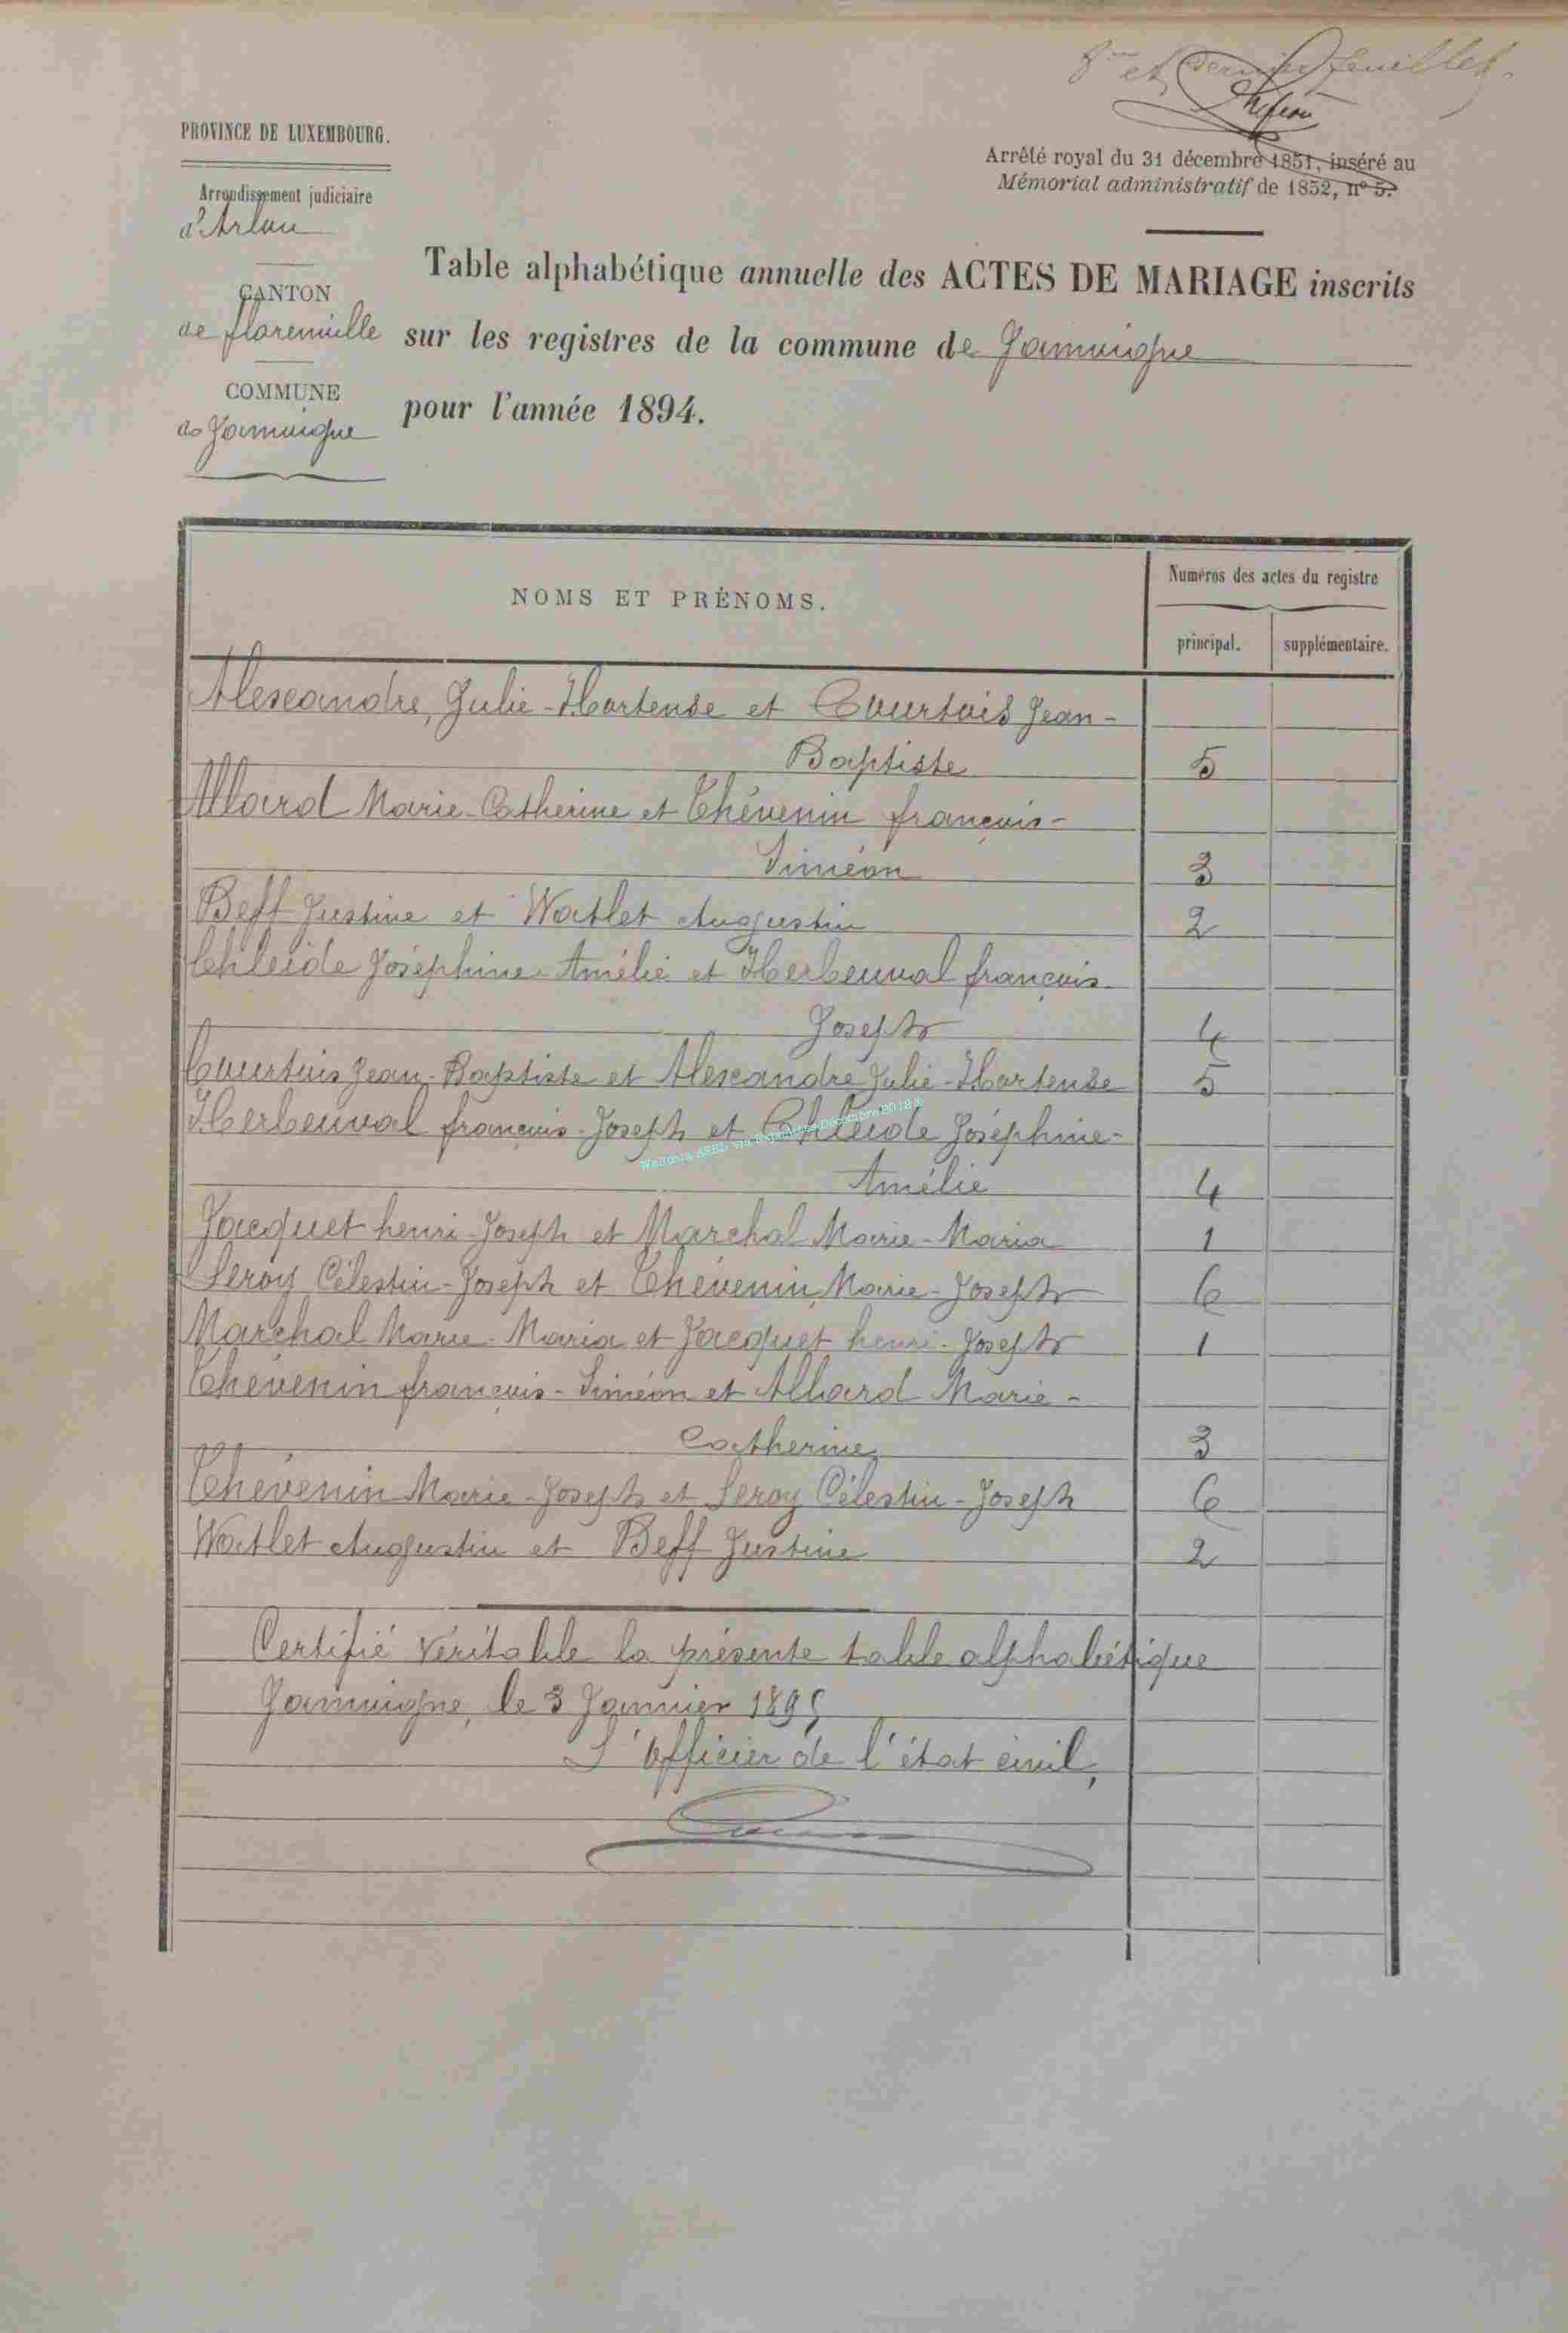 8me et dernier feuillet.
PROVINCE DE LUXEMBOURG.
Arrondissement judiciaire
d'Arlon
CANTON
de florenville
COMMUNE
de Jamoigne
Arrêté royal du 31 décembre 1851, inséré au
Mémorial administratif de 1852, nº 5.
Table alphabétique annuelle des ACTES DE MARIAGE inscrits
sur les registres de la commune de Jamoigne
pour l'année 1894.
NOMS ET PRÉNOMS.
Numéros des actes du registre
principal. supplémentaire.
Alexandre, Julie-Hortense et Courtois Jean-
Baptiste 5
Allard Marie-Catherine et Thévenin françois-
Siméon 3
Beff Justine et Watlet Augustin 2
Chleide Joséphine-Amélie et Herbeuval françois
Joseph 4
Courtois Jean-Baptiste et Alexandre Julie-Hortense 5
Herbeuval françois-Joseph et Chleide Joséphine-
Amélie 4
Jacquet henri-Joseph et Marchal Marie-Maria 1
Leroy Célestin-Joseph et Thévenin Marie-Joseph 6
Marchal Marie-Maria et Jacquet henri-Joseph 1
Thévenin françois-Siméon et Allard Marie-
Catherine 3
Thévenin Marie-Joseph et Leroy Célestin-Joseph 6
Watlet Augustin et Beff Justine 2
Certifié véritable la présente table alphabétique
Jamoigne, le 3 Janvier 1895
L'officier de l'état civil,